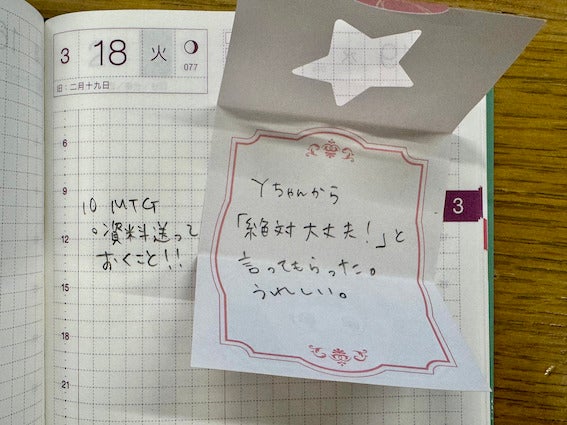 3 18 火
077
旧:二月十九日
6
9
10 MTG
○資料送って
12
おくこと!!
15
18
21
Yちゃんから
「絶対大丈夫!」と
言ってもらった。
うれしい。
3